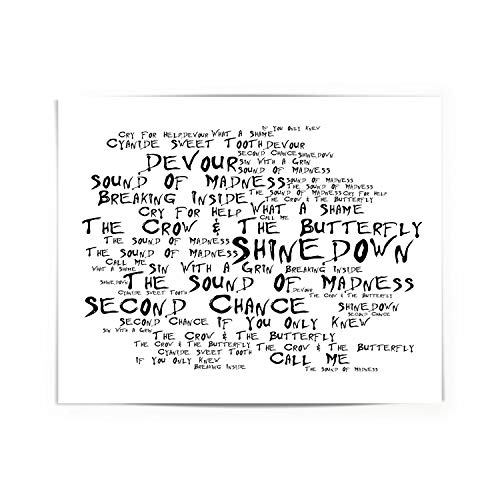 If You Only Knew
Cry For Help Devour What A Shame
Cyanide Sweet Tooth Devour
Second Chance Shinedown
Devour Sin With A Grin
Sound Of Madness
Sound Of Madness Sound Of Madness
The Sound Of Madness
Breaking Inside The Sound Of Madness Cry For Help
The Crow & The Butterfly
Cry For Help What A Shame
Call Me
The Crow & The Butterfly
The Sound Of Madness Shinedown
The Sound Of Madness
Call Me
What A Shame Sin With A Grin Breaking Inside
Shinedown The Sound Of Madness
Cyanide Sweet Tooth Devour The Crow & The Butterfly
Second Chance Shinedown
Second Chance
Second Chance If You Only Knew
Sin With A Grin
The Crow & The Butterfly
The Crow & The Butterfly The Crow & The Butterfly
Cyanide Sweet Tooth
If You Only Knew Call Me
Breaking Inside The Sound Of Madness